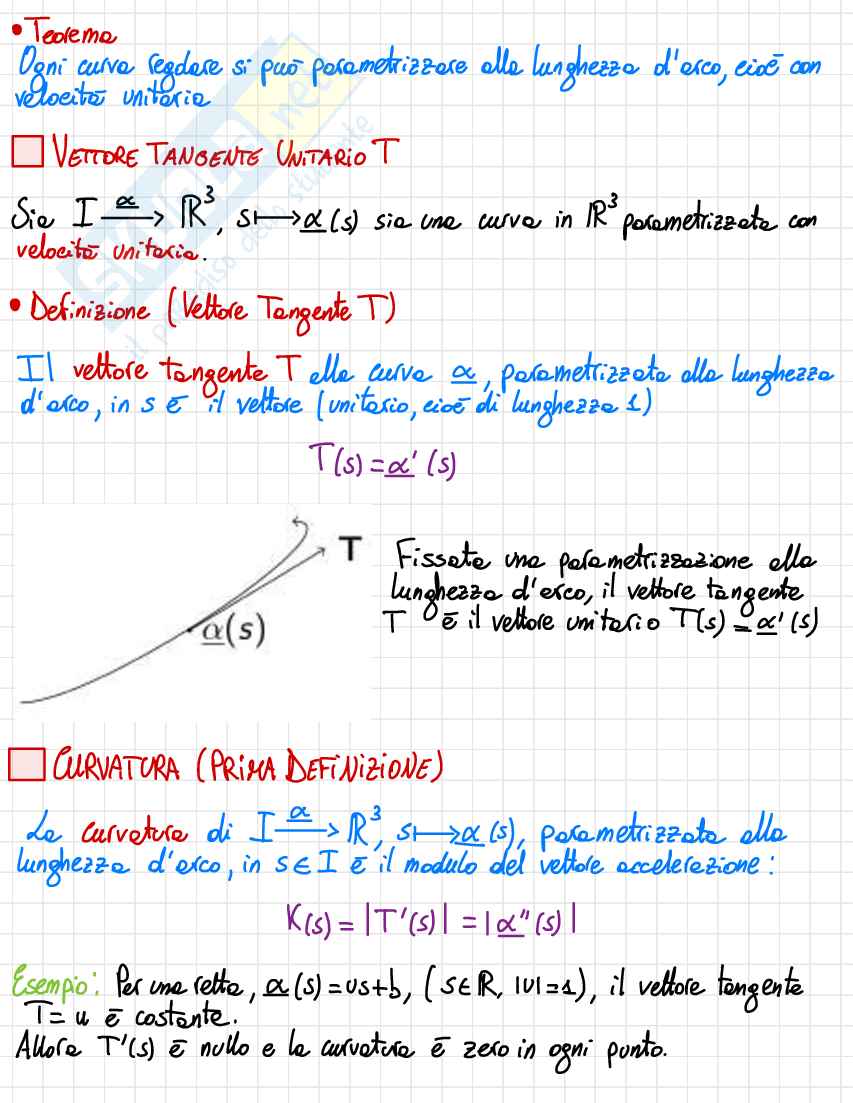 • Teorema
Ogni curva regolare si può parametrizzare alla lunghezza d'arco, cioè con
velocità unitaria
VETTORE TANGENTE UNITARIO T
Sia I —α→ ℝ³, s ⟼ α(s) sia una curva in ℝ³ parametrizzata con
velocità unitaria.
• Definizione (Vettore Tangente T)
Il vettore tangente T alla curva α, parametrizzata alla lunghezza
d'arco, in s è il vettore (unitario, cioè di lunghezza 1)
T(s) = α'(s)
T
α(s)
Fissata una parametrizzazione alla
lunghezza d'arco, il vettore tangente
T è il vettore unitario T(s) = α'(s)
CURVATURA (PRIMA DEFINIZIONE)
La curvatura di I —α→ ℝ³, s ⟼ α(s), parametrizzata alla
lunghezza d'arco, in s ∈ I è il modulo del vettore accelerazione:
K(s) = |T'(s)| = |α''(s)|
Esempio: Per una retta, α(s) = us+b, (s∈ℝ, |u|=1), il vettore tangente
T = u è costante.
Allora T'(s) è nullo e la curvatura è zero in ogni punto.
SKUOLA.net
il paradiso dello studente